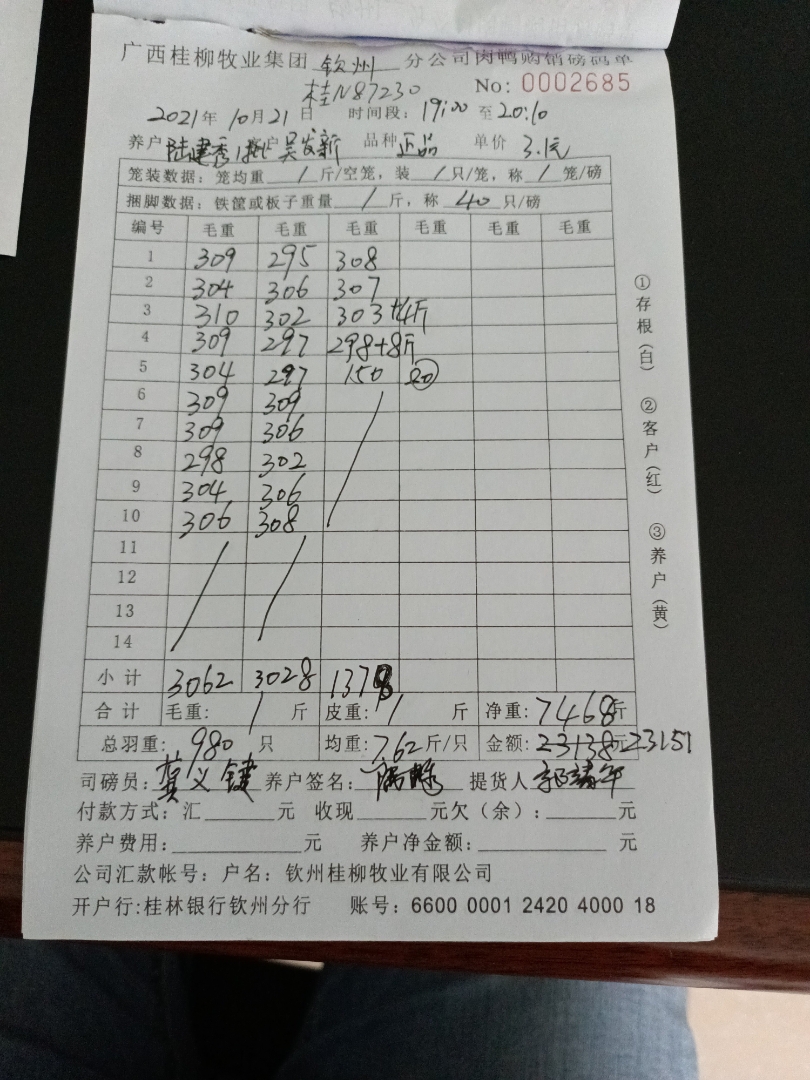 广西桂柳牧业集团 钦州 分公司肉鸭购销磅码单
桂N87230 No: 0002685
2021年10月21日 时间段: 19:00 至 20:10
养户 陆建秀 客户 吴发新 品种 正品 单价 3.1元
笼装数据: 笼均重 / 斤/空笼, 装 / 只/笼, 称 / 笼/磅
捆脚数据: 铁筐或板子重量 / 斤, 称 40 只/磅
编号 毛重 毛重 毛重 毛重 毛重 毛重
1 309 295 308
2 304 306 307
3 310 302 303+4斤
4 309 297 298+8斤
5 304 297 150 20
6 309 309
7 309 306
8 298 302
9 304 306
10 306 308
11
12
13
14
小计 3062 3028 1378
合计 毛重: / 斤 皮重: / 斤 净重: 7468斤
总羽重: 980 只 均重: 7.62斤/只 金额: 23138元 23151
司磅员: 莫义键 养户签名: 提货人
付款方式: 汇 元 收现 元欠(余): 元
养户费用: 元 养户净金额: 元
公司汇款帐号: 户名: 钦州桂柳牧业有限公司
开户行:桂林银行钦州分行 账号: 6600 0001 2420 4000 18
①存根(白)
②客户(红)
③养户(黄)